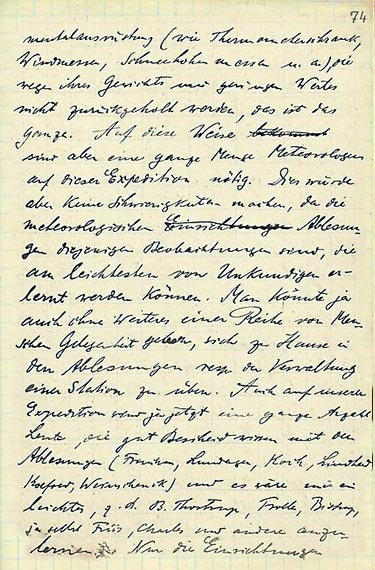 74
mentalausrüstung (wie Thermometerschrank,
Windmesser, Schneehöhenmesser u. a.), die
wegen ihres Gewichts und geringen Wertes
nicht zurückgeholt werden, das ist das
ganze. Auf diese Weise bekommt
sind aber eine ganze Menge Meteorologen
auf dieser Expedition nötig. Dies würde
aber keine Schwierigkeiten machen, da die
meteorologischen Einrichtungen Ablesun-
gen diejenigen Beobachtungen sind, die
am leichtesten von Unkundigen er-
lernt werden können. Man könnte ja
auch ohne weiteres einer Reihe von Men-
schen Gelegenheit geben, sich zu Hause in
den Ablesungen resp. der Verwaltung
einer Station zu üben. Auch auf unserer
Expedition sind ja jetzt eine ganze Anzahl
Leute, die gut Bescheid wissen mit den
Ablesungen (Freuchen, Lundager, Koch,
Koefoed, Weinschenck) und es wäre mir ein
leichtes, z. B. Thostrup, Trolle, Bistrup,
ja selbst Friis, Charles und andere anzu-
lernen. Nur die Einrichtungen